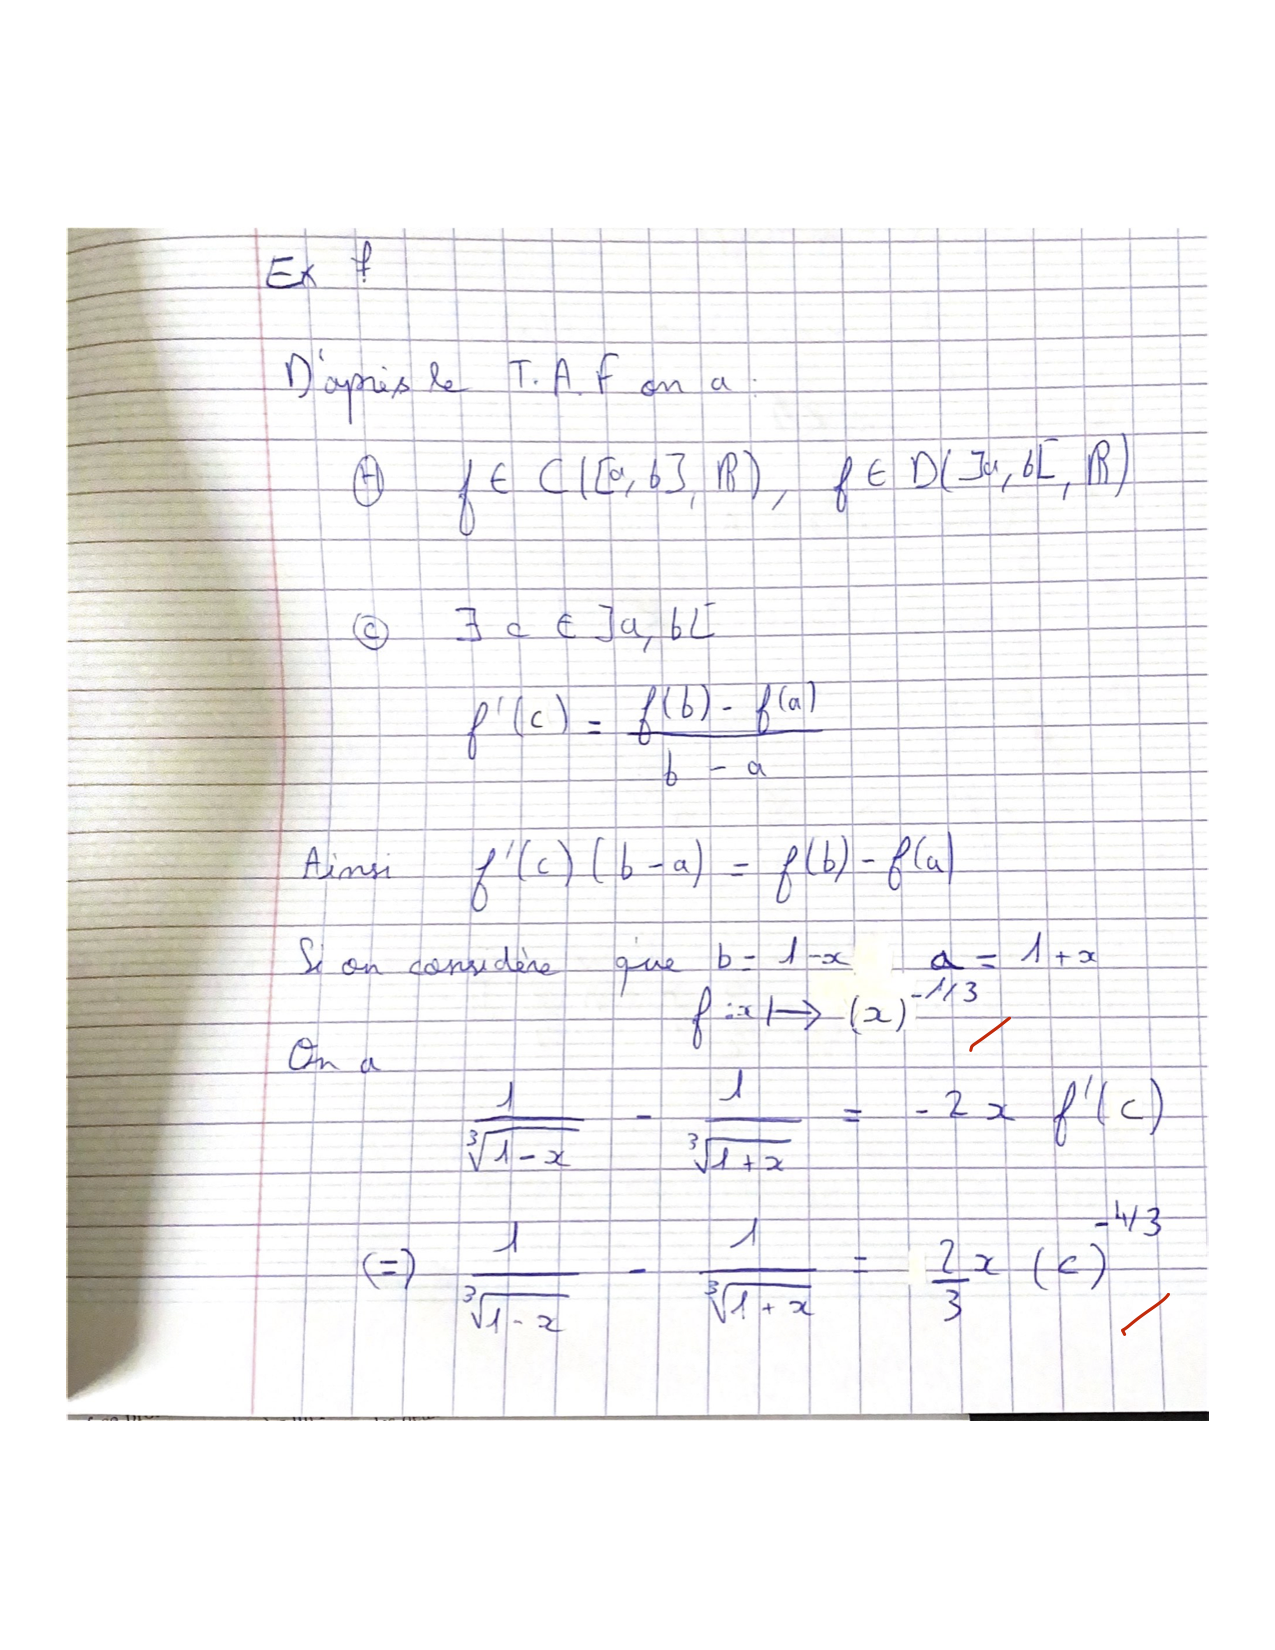 Ex 7
D'après le T.A.F on a :
(H) f ∈ C([a,b], ℝ), f ∈ D(]a,b[, ℝ)
(C) ∃ c ∈ ]a,b[
f'(c) = (f(b) - f(a)) / (b - a)
Ainsi f'(c)(b-a) = f(b) - f(a)
Si on considère que b = 1-x a = 1+x
f : x ↦ (x)^(-1/3)
On a
1/∛(1-x) - 1/∛(1+x) = -2x f'(c)
(=) 1/∛(1-x) - 1/∛(1+x) = 2/3 x (c)^(-4/3)